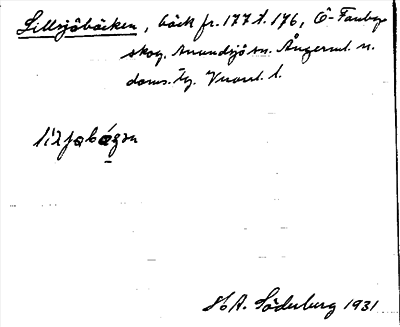 Lillsjöbäcken, bäck fr. 177 t. 176, Ö-Fanby
skog, Anundsjö sn. Ångerml. n.
doms. tg. Vnorrl. l.
H.A. Söderberg 1931